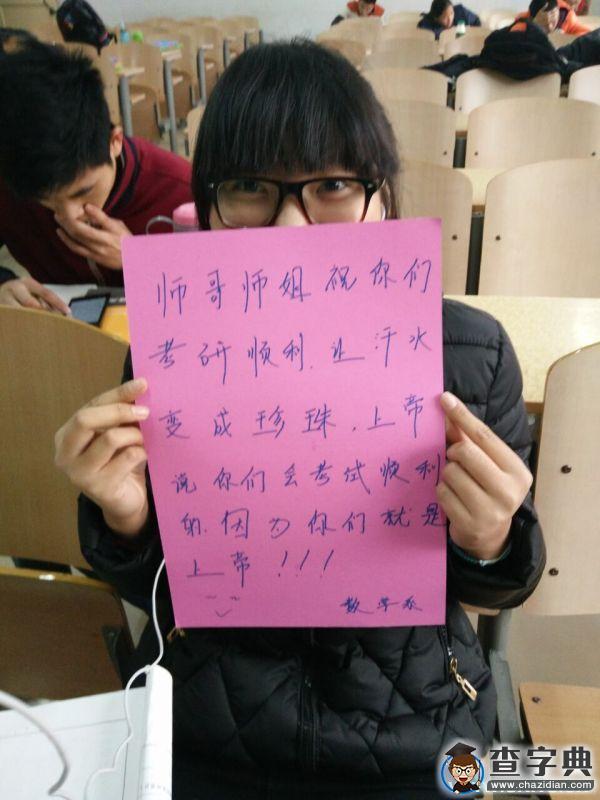 师哥师姐祝你们
考研顺利.让汗水
变成珍珠.上帝
说你们会考试顺利
的.因为你们就是
上帝!!!
数学系
查字典
www.chazidian.com